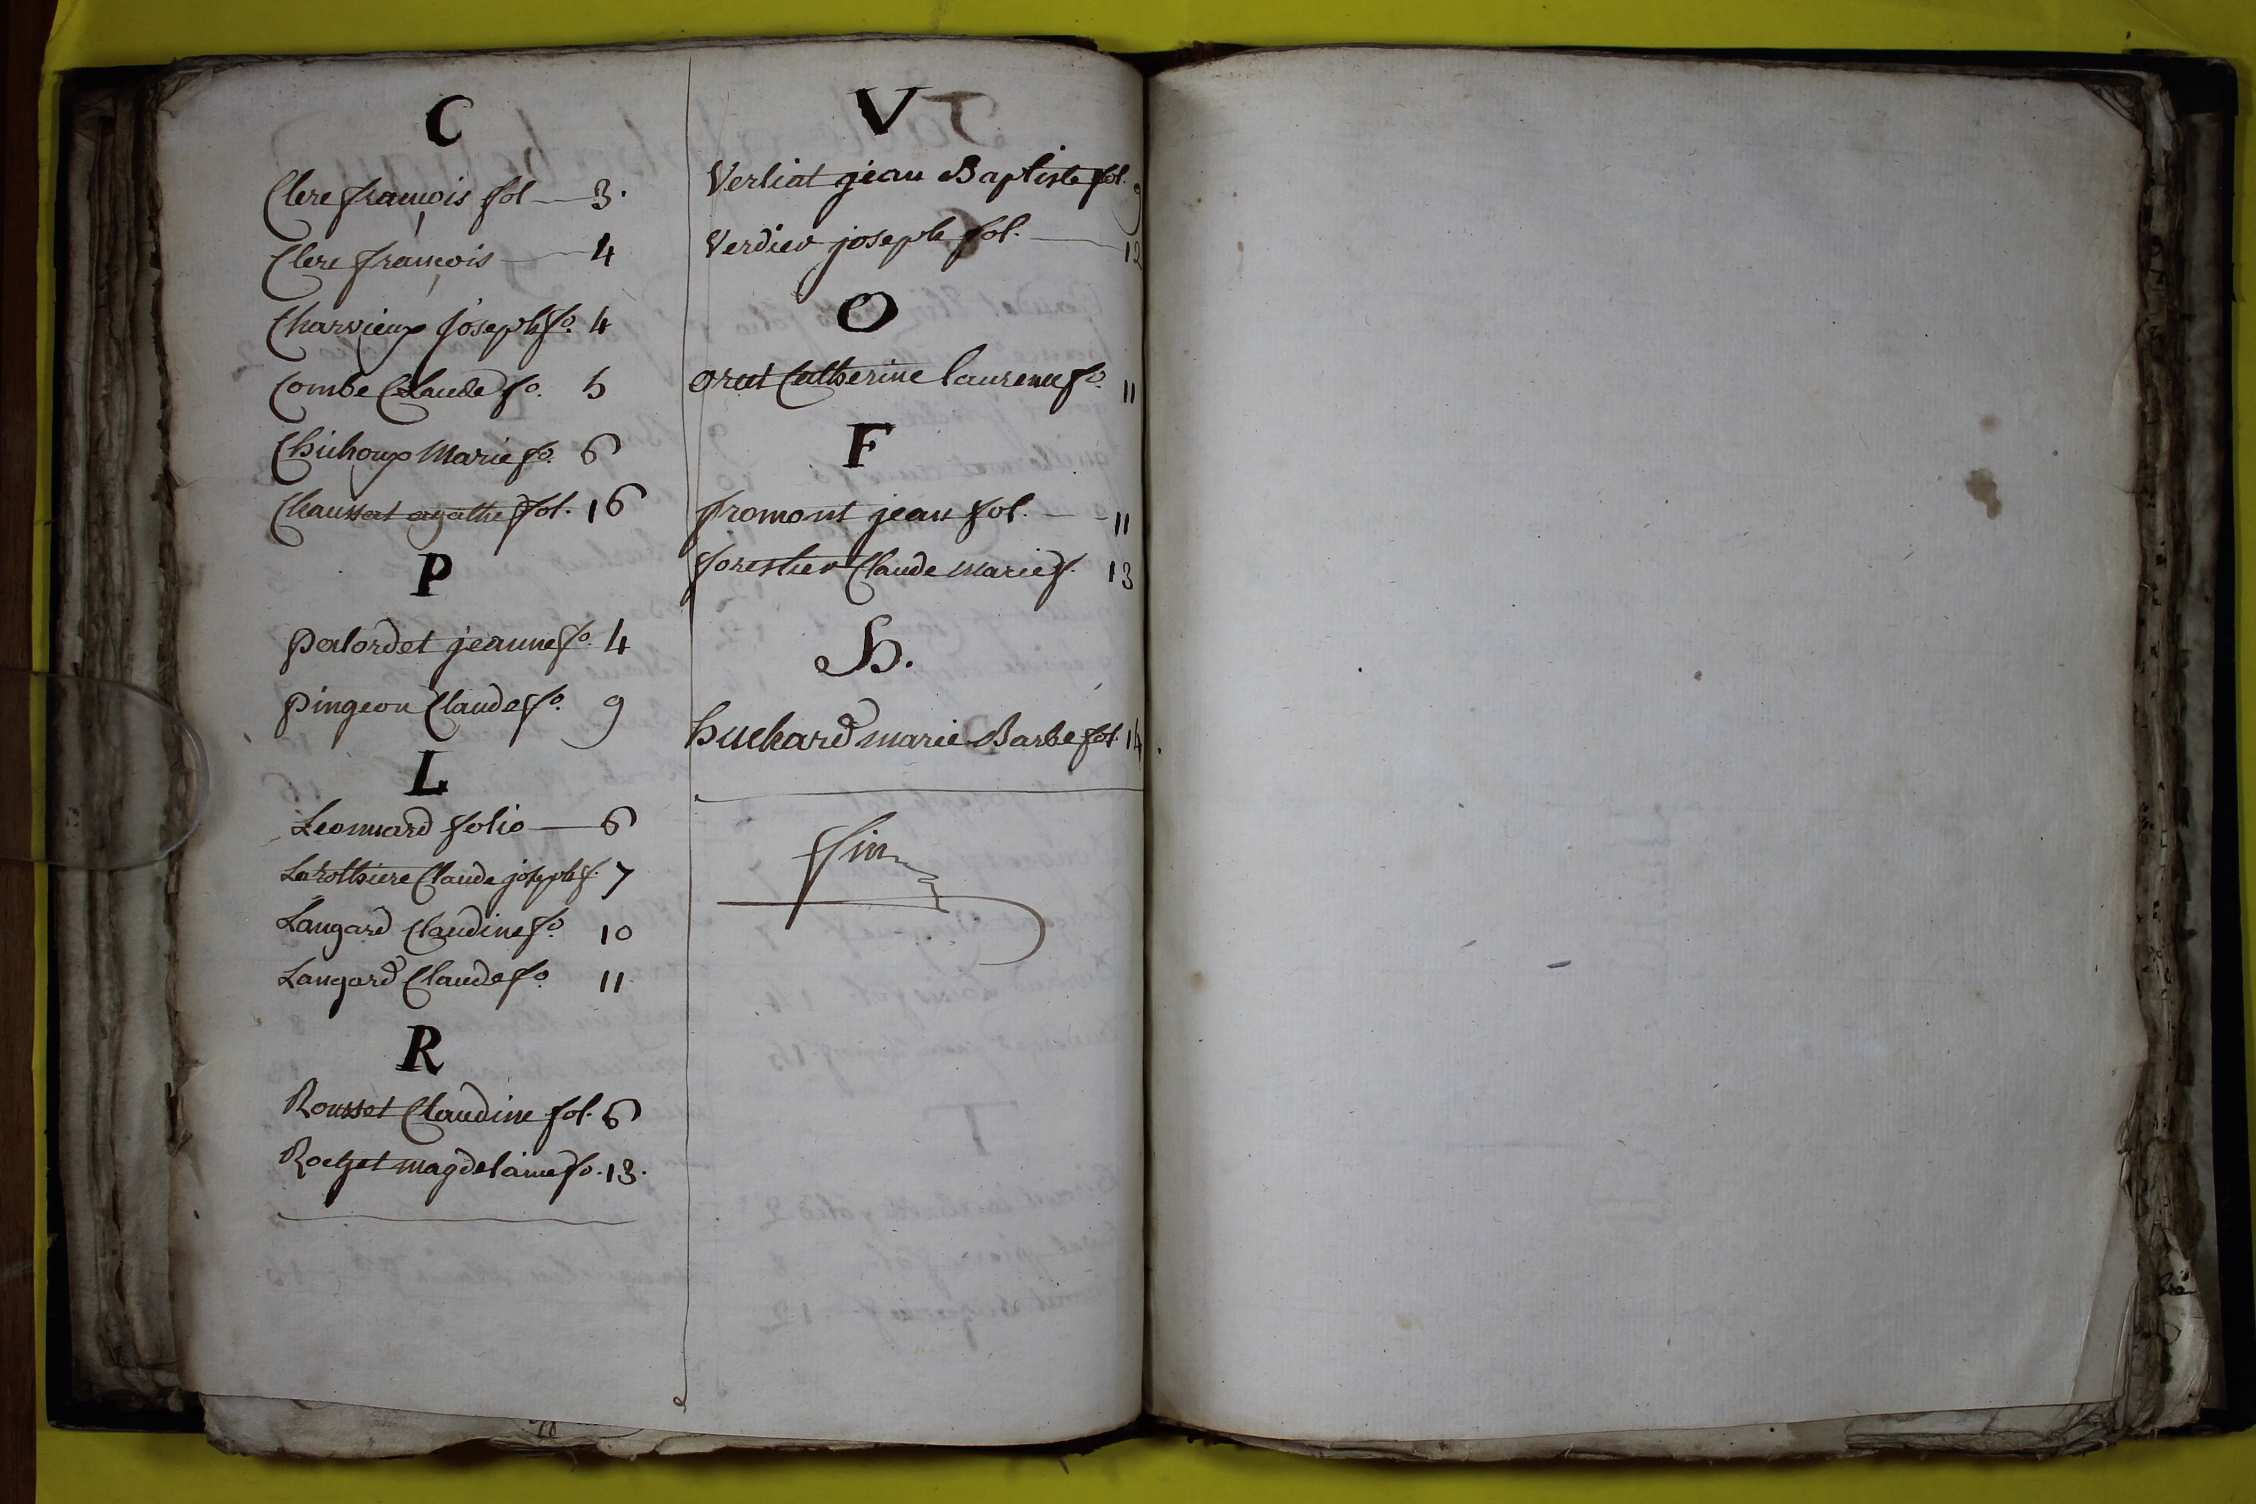 C
Clere françois fol — 3.
Clere françois — 4
Charvieux joseph fo. 4
Combe Claude fo. 5
Chichoux Marie fo. 6
Chaussat agathe fol. 16
P
Palordet jeanne fo. 4
Pingeon Claude fo. 9
L
Leonnard folio — 6
Larothiere Claude joseph f. 7
Langard Claudine fo. 10
Langard Claude fo. 11
R
Rousset Claudine fol. 6
Rochet magdelaine fo. 13.
V
Verliat jean Baptiste fol. 9
Verdier joseph fol. — 12
O
orut Catherine laurence fo. 11
F
fromont jean fol. — 11
forestier Claude Marie f. 13
H.
huchard marie Barbe fol 14
fin